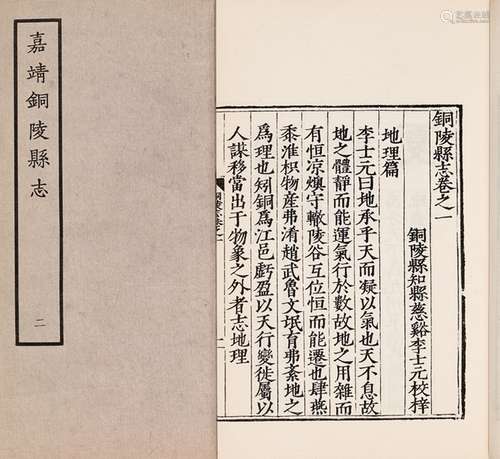 嘉靖銅陵縣志
二
銅陵縣志卷之一
銅陵縣知縣慈谿李士元校梓
地理篇
李士元曰地承乎天而凝以氣也天不息故
地之體靜而能運氣行於數故地之用雜而
有恒凉燠守轍陵谷互位恒而能遷也肆燕
黍淮枳物産弗淆趙武魯文氓育弗紊地之
爲理也矧銅爲江邑虧盈以天行變徙屬以
人謀移當出于物象之外者志地理